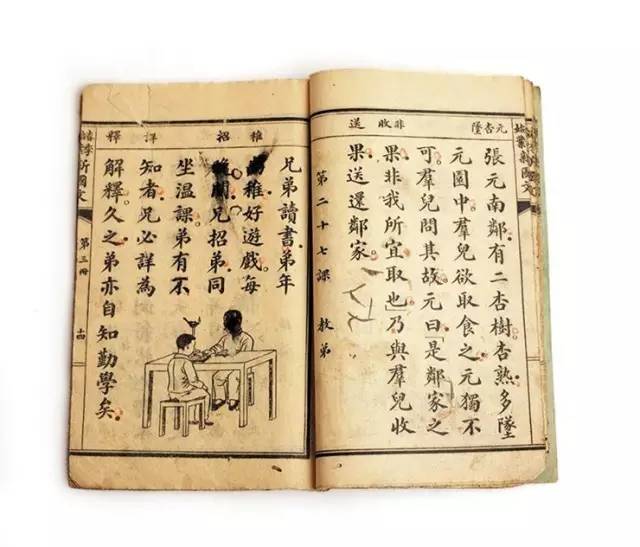 元杏墜非收送
新國文
張元南鄰有二杏樹杏熟多墜
元園中羣兒欲取食之元獨不
可羣兒問其故元曰「是鄰家之
果非我所宜取也」乃與羣兒收
果送還鄰家
第二十七課 教弟
稚招詳釋
兄弟讀書弟年
稚好遊戲每
兄招弟同
坐溫課弟有不
知者兄必詳為
解釋久之弟亦自知勤學矣
新國文 第三冊 十四